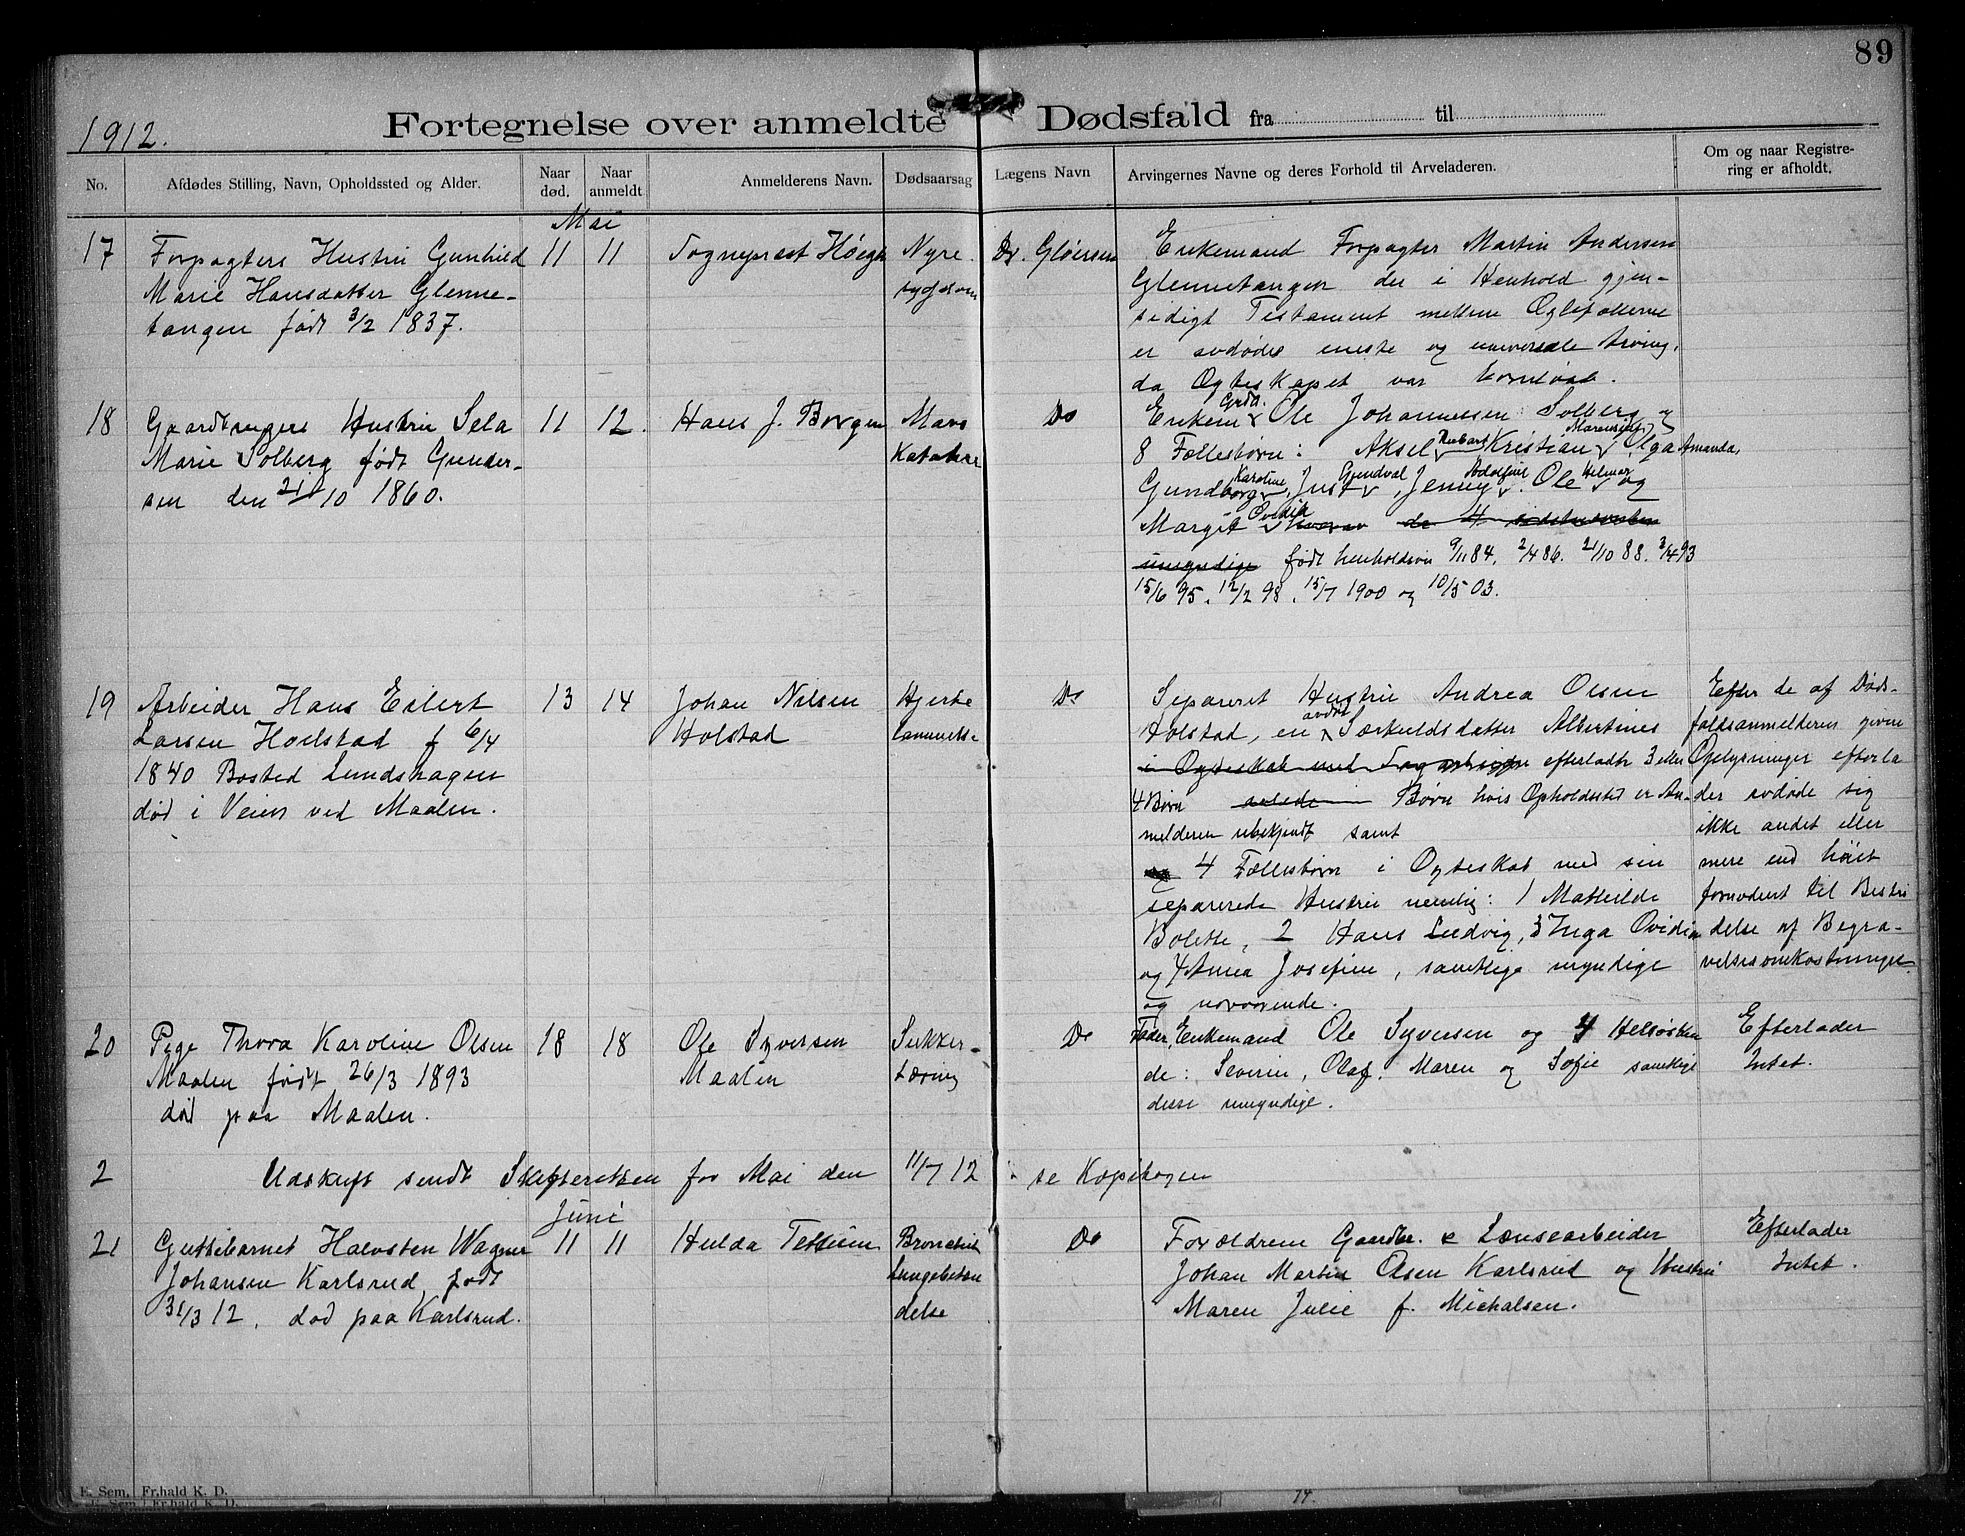 89
1912.
Fortegnelse over anmeldte Dødsfald fra til
No.
Afdødes Stilling, Navn, Opholdssted og Alder.
Naar død.
Naar anmeldt
Anmelderens Navn.
Dødsaarsag
Lægens Navn
Arvingernes Navne og deres Forhold til Arveladeren.
Om og naar Registre-
ring er afholdt.
Mai
17 Forpagters Hustru Gunhild
Marie Hansdatter Glenne-
tangen født 3/2 1837.
11 11 Sogneprest Høegh
Nyre
sygdom
Dr. Gløersen
Enkemand Forpagter Martin Andersen
Glennetangen der i Henhold gjen-
sidigt Testament mellem Egtefolkene
er avdødes eneste og universale Arving,
da Egteskapet var barnløst.
18 Gaardbrugers Hustru Sela
Marie Solberg født Gunder-
sen den 21/10 1860.
11 12. Hans J. Borgen
Mave
Katahr
Do
Enkem. Grdbr. Ole Johannessen Solberg og
8 Fællesbørn: Aksel Kristian, Olga Amanda,
Gundborg Karoline, Just Gundval, Jenny Adolfine, Ole Hilmar og
Margit
født henholdsvis 9/11 84. 2/4 86. 21/10 88. 3/4 93
15/6 95. 12/2 98. 15/7 1900 og 10/5 03.
19 Arbeider Hans Eilert
Larsen Holstad f 6/4
1840 Bosted Lundshagen
død i Veien ved Maalen.
13 14 Johan Nilsen
Holstad
Hjerte
lammelse
Do
Separeret Hustru Andrea Olsen
Holstad, en avdød Særkuldsdatter Albertines
i Egteskab med efterladte 3 eller
4 Børn Børn hvis Opholdssted er An-
melderen ubekjendt samt
og 4 Fællesbørn i Egteskab med sin
separerede Hustru nemlig: 1 Mathilde
Bolette, 2 Hans Ludvig, 3 Inga Ovidia
og 4 Anna Josefine, samtlige myndige
og nærværende.
Efter de af Døds-
faldsanmelderen givne
Oplysninger efterla
der avdøde sig
ikke andet eller
mere end høist
fornødent til Bestri
delse af Begra-
velsesomkostninger.
20 Pige Thora Karoline Olsen
Maalen født 26/3 1893
død paa Maalen.
18 18 Ole Syversen
Maalen
Sukker-
Do
Fader, Enkemand Ole Syversen og 4 Helsøsken
de: Severin, Olaf, Maren og Sofie samtlige
disse umyndige.
Efterlader
Intet.
2 Udskrift sendt Skifteretten for Mai den 11/7 12 se Kopibogen
Juni
21 Guttebarnet Halvsten Wagner
Johansen Karlsrud, født
31/3 12, død paa Karlsrud.
11 11 Hulda
Lungebetæn
delse
Do
Forældrene Gaardbr. & Lænsearbeider
Johan Martin Olsen Karlsrud og Hustru
Maren Julie f. Michalsen.
Efterlader
Intet.
E. Sem, Fr.hald K. D.
E. Sem, Fr.hald K. D.